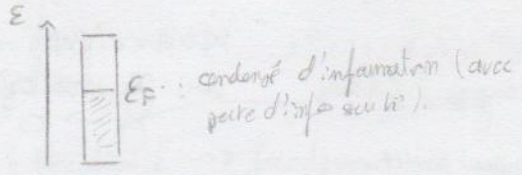 ε
ε_F : condensé d'information (avec
perte d'info sur k⃗).